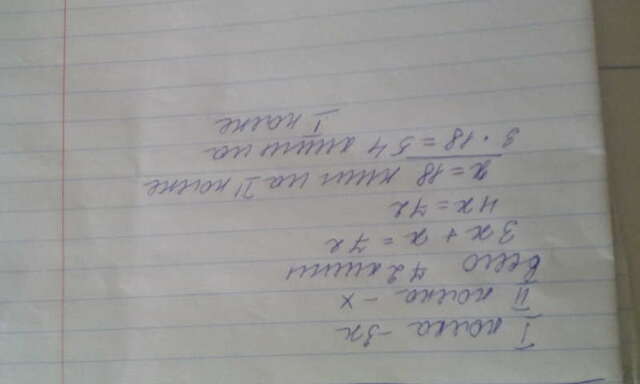 I полка - 3х
II полка - х
всего 72 книги
3х + х = 72
4х = 72
х = 18 книг на II полке
3 · 18 = 54 книги на
I полке